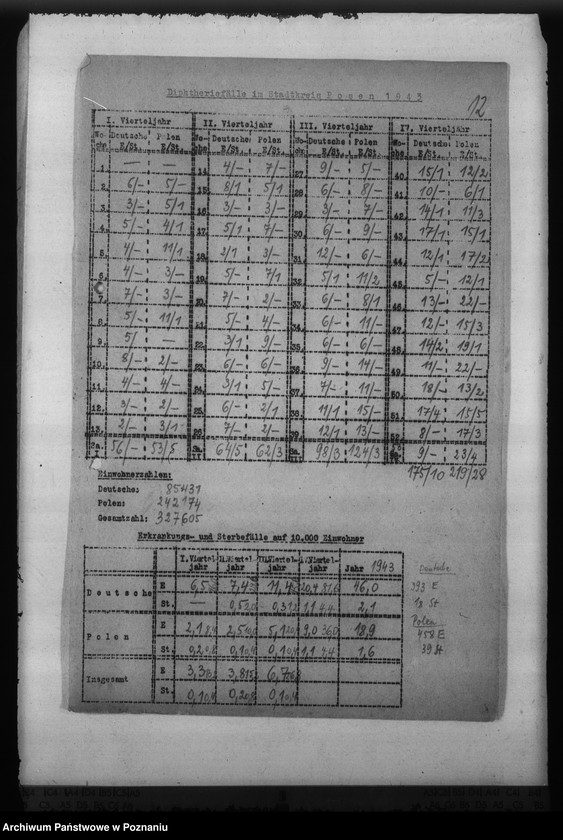 Diphtheriefälle im Stadtkreis Posen 1943
12
I. Vierteljahr II. Vierteljahr III. Vierteljahr IV. Vierteljahr
Wo- Deutsche Polen Wo- Deutsche Polen Wo- Deutsche Polen Wo- Deutsche Polen
che E/St. E/St. che E/St. E/St. che E/St. E/St. che E/St. E/St.
1. — 14. 4/- 7/- 27. 9/- 5/- 40. 15/1 12/2
2. 6/- 5/- 15. 8/1 5/1 28. 6/- 8/- 41. 10/- 6/1
3. 3/- 5/1 16. 3/- 3/- 29. 3/- 7/- 42. 14/1 11/3
4. 5/- 4/1 17. 5/1 7/- 30. 6/- 9/- 43. 17/1 15/1
5. 4/- 11/1 18. 2/1 3/- 31. 12/- 6/- 44. 12/1 17/2
6. 4/- 3/- 19. 5/- 7/1 32. 5/1 11/2 45. 5/- 12/1
7. 7/- 3/- 20. 7/- 2/- 33. 6/- 8/1 46. 13/- 22/-
8. 5/- 11/1 21. 5/- 4/- 34. 6/- 11/- 47. 12/- 15/3
9. 5/ — 22. 3/1 9/- 35. 6/- 6/- 48. 14/2 19/1
10. 8/- 2/- 23. 6/- 6/- 36. 9/- 14/- 49. 11/- 22/-
11. 4/- 4/- 24. 3/1 5/- 37. 7/- 11/- 50. 18/- 13/2
12. 3/- 2/- 25. 6/- 2/1 38. 11/1 15/- 51. 17/4 15/5
13. 2/- 3/1 26. 7/- 2/- 39. 12/1 13/- 8/- 17/3
Sa. I 56/- 53/5 Sa. II 64/5 62/3 Sa. III 98/3 124/3 9/- 23/4
175/10 219/28
Einwohnerzahlen:
Deutsche: 85431
Polen: 242174
Gesamtzahl: 327605
Erkrankungs- und Sterbefälle auf 10.000 Einwohner
I. Viertel- II. Viertel- III. Viertel- IV. Viertel- Jahr 1943
jahr jahr jahr jahr
Deutsche E 6,5 7,4 11,4 20,4 81,6 46,0
St. — 0,5 0,3 1,2 1,1 4,4 2,1
Polen E 2,1 8,4 2,5 5,1 9,0 36,0 18,9
St. 0,2 0,8 0,1 0,4 0,1 0,4 1,1 4,4 1,6
Insgesamt E 3,3 3,8 6,7
St. 0,1 0,4 0,2 0,8 0,1 0,4
Deutsche
393 E
18 St
Polen
458 E
39 St
Archiwum Państwowe w Poznaniu